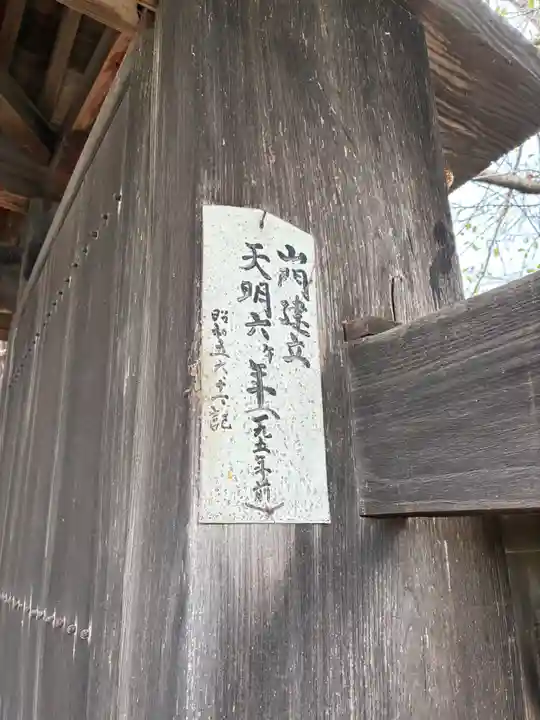 山門建立
天明六ヶ年(一九五年前)
昭和五六、十一記